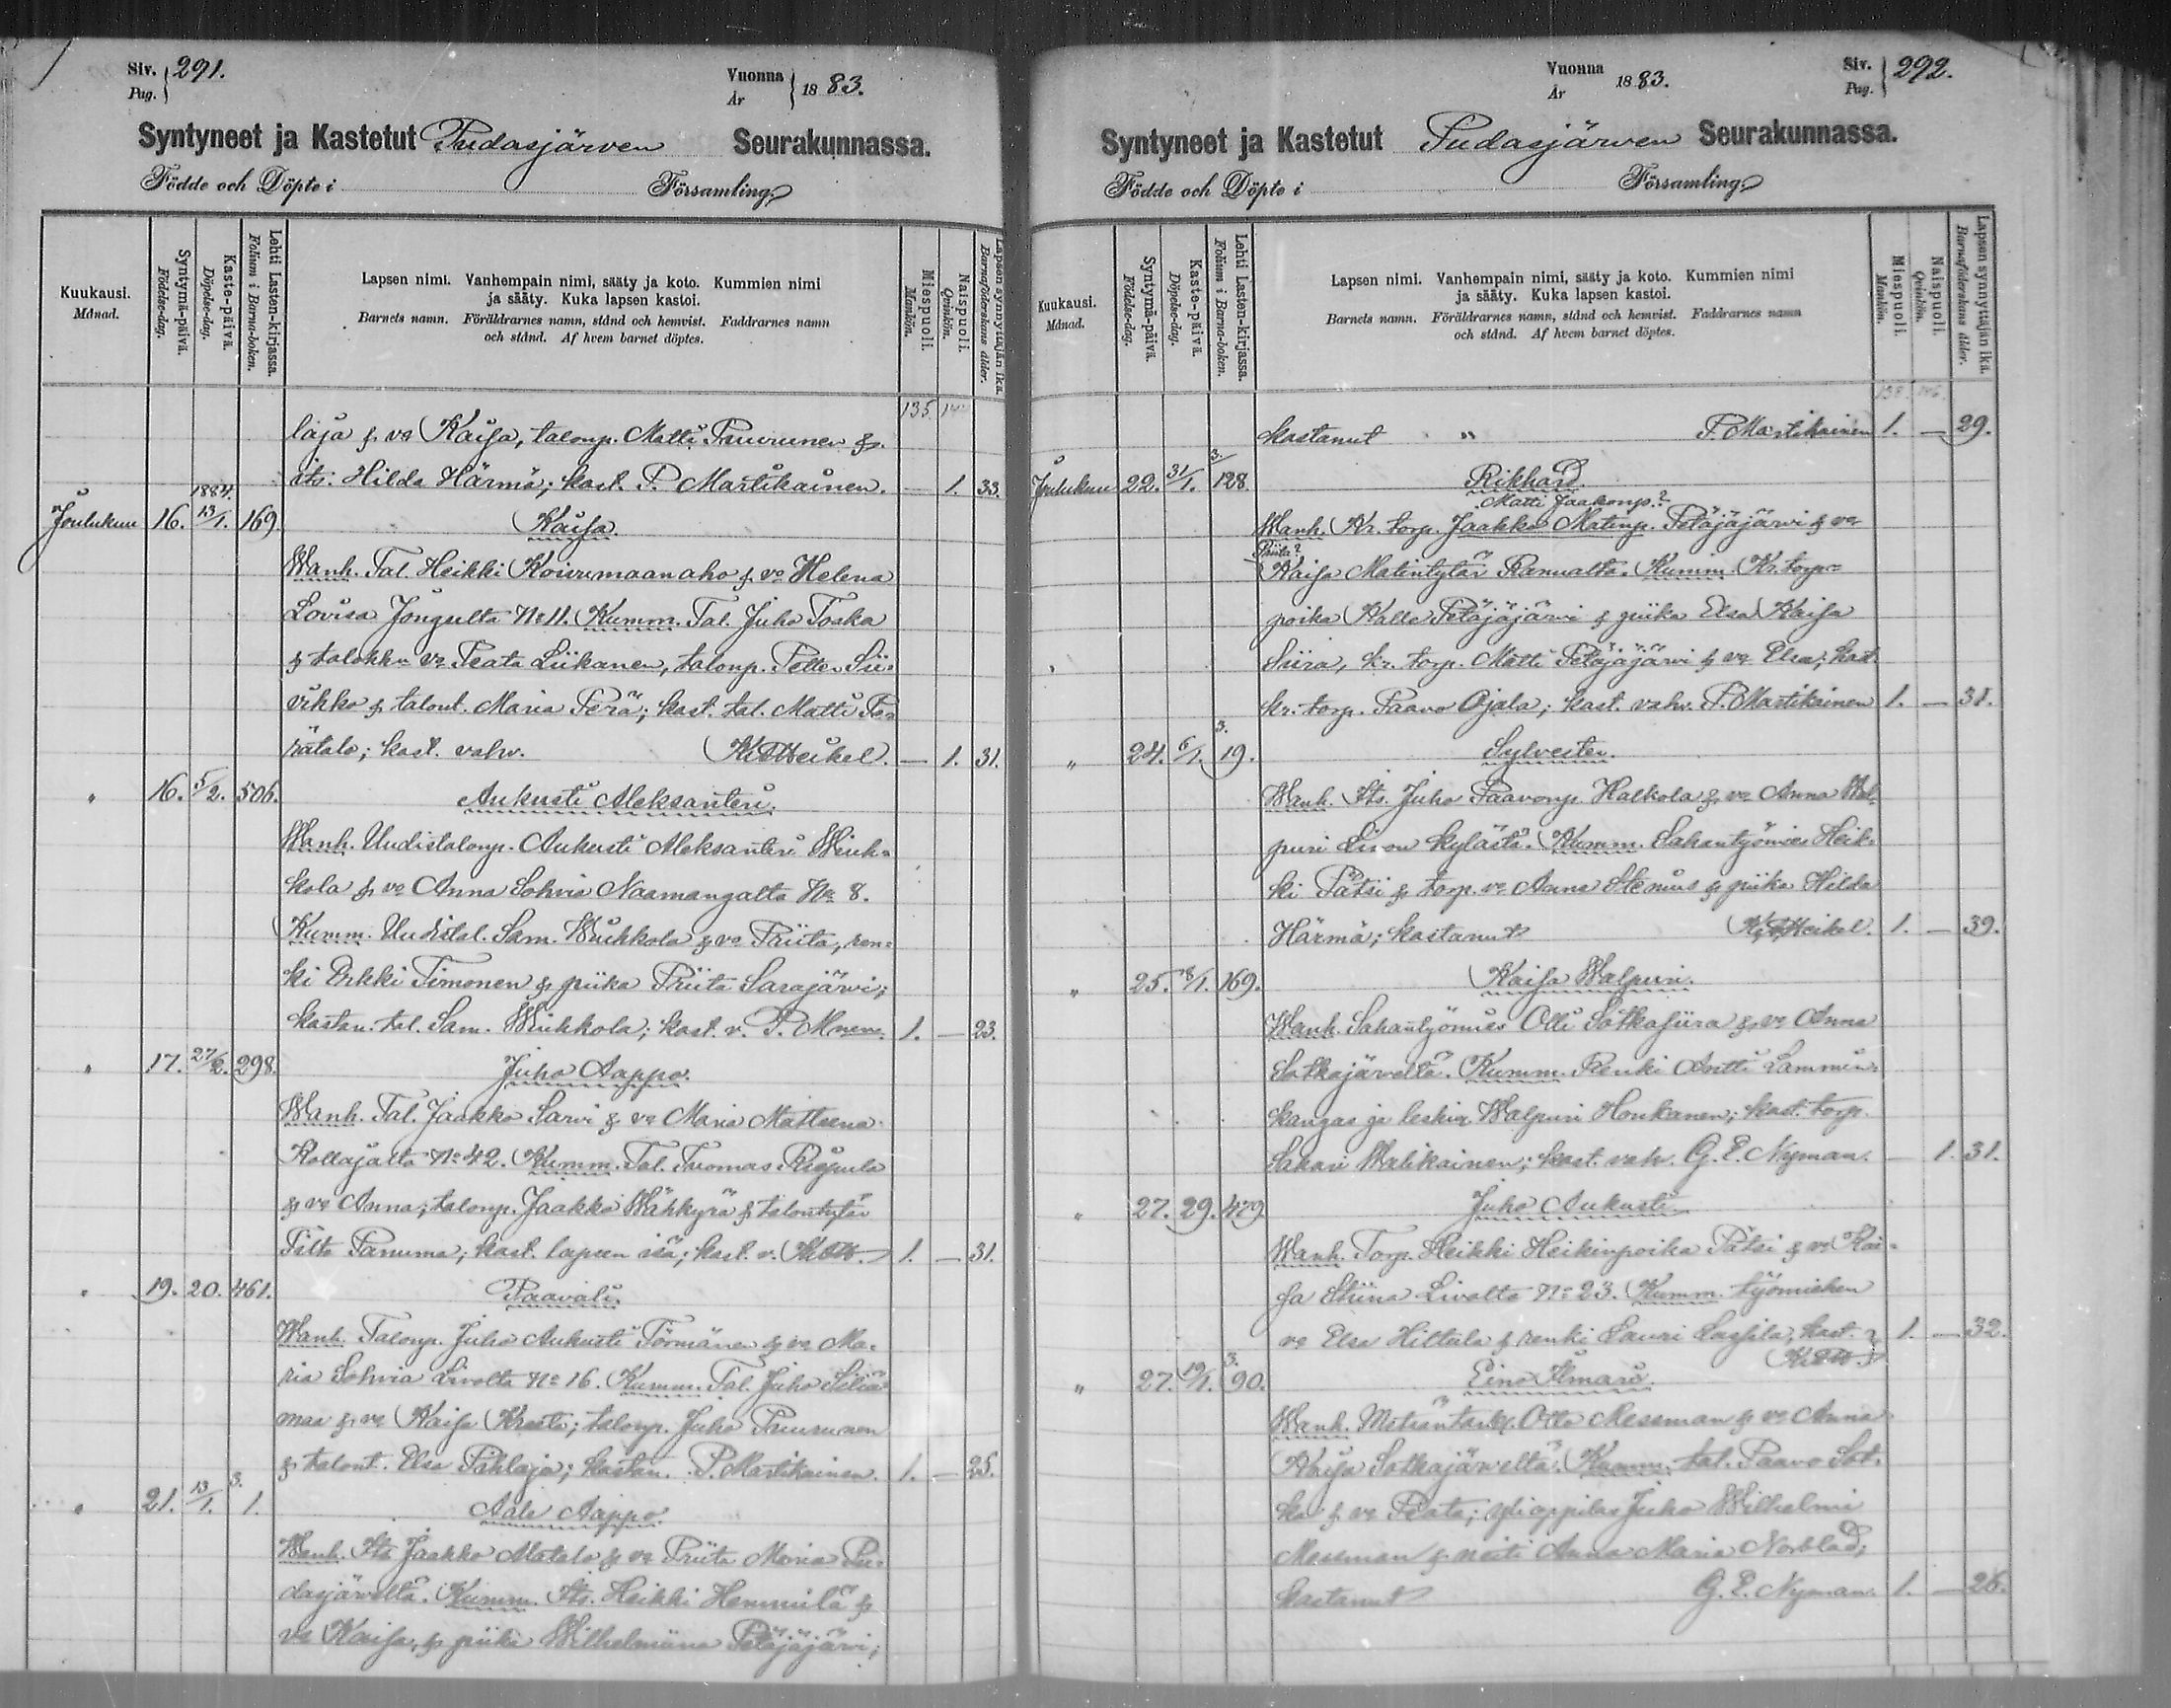 Siv. 291.
Pag.
Vuonna 1883.
År
Syntyneet ja Kastetut Pudasjärven Seurakunnassa.
Födde och Döpte i Församling.
Kuukausi.
Månad.
Syntymä-päivä.
Födelse-dag.
Kaste-päivä.
Döpelse-dag.
Lehti Lasten-kirjassa.
Folium i Barna-boken.
Lapsen nimi. Vanhempain nimi, sääty ja koto. Kummien nimi
ja sääty. Kuka lapsen kastoi.
Barnets namn. Föräldrarnes namn, stånd och hemvist. Faddrarnes namn
och stånd. Af hvem barnet döptes.
Miespuoli.
Mankön.
Naispuoli.
Qvinkön.
Lapsen synnyttäjän ikä.
Barnaföderskans ålder.
135.
laja & vo Kaisa, talonp. Matti Puurunen &
its: Hilda Härmä; kast. P. Martikainen. — 1. 33.
Joulukuu 16. 1884. 13/1. 169 Kaisa.
Wanh. Tal. Heikki Koivumaanaho & vo Helena
Lovisa Jongulta No 11. Kumm. Tal. Juho Toska
& talokkn vo Peata Liikanen, talonp. Petter Sii-
vikko & talont. Maria Perä; kast. tal. Matti Pe-
rätalo; kast. vahv. K. A. Heikel. — 1. 31.
" 16. 5/2. 506. Aukusti Aleksanteri.
Wanh. Uudistalonp. Aukusti Aleksanteri Wiuh-
kola & vo Anna Sohvia Naamangalta No 8.
Kumm. Uudistal. Sam. Wiuhkola & vo Priita, ren-
ki Erkki Timonen & piika Priita Sarajärvi;
kastan. tal. Sam. Wiuhkola; kast. v. P. Mnen. 1. — 23.
" 17. 27/2. 298. Juho Aappo.
Wanh. Tal. Jaakko Sarvi & vo Maria Matleena
Kollajalta No 42. Kumm. Tal. Tuomas Riepula
& vo Anna; talonp. Jaakko Wähkyrä & talontytär
Tilta Panuma; kast. lapsen isä; kast. v. 1. — 31.
" 19. 20. 461. Paavali.
Wanh. Talonp. Juho Aukusti Törmänen & vo Ma-
ria Sohvia Livolta No 16. Kumm. Tal. Juho Siliä-
maa & vo Kaisa Kreeta; talonp. Juho Puurunen
& talont. Elsa Pihlaja; kastan. P. Martikainen. 1. — 25.
" 21. 13/1. 3. 1. Aale Aappo.
Wanh. Its. Jaakko Alatalo & vo Priita Maria Pu-
dasjärveltä. Kumm. Its. Heikki Hemmilä &
vo Kaisa, & piika Wilhelmiina Petäjäjärvi;
Vuonna 1883.
År
Siv. 292.
Pag.
Syntyneet ja Kastetut Pudasjärven Seurakunnassa.
Födde och Döpte i Församling.
Kuukausi.
Månad.
Syntymä-päivä.
Födelse-dag.
Kaste-päivä.
Döpelse-dag.
Lehti Lasten-kirjassa.
Folium i Barna-boken.
Lapsen nimi. Vanhempain nimi, sääty ja koto. Kummien nimi
ja sääty. Kuka lapsen kastoi.
Barnets namn. Föräldrarnes namn, stånd och hemvist. Faddrarnes namn
och stånd. Af hvem barnet döptes.
Miespuoli.
Mankön.
Naispuoli.
Qvinkön.
Lapsen synnyttäjän ikä.
Barnaföderskans ålder.
138. 146.
kastanut " P. Martikainen 1. — 29.
Joulukuu 22. 31/1. 3. 128. Rikhard.
Matti Jaakonp.?
Wanh. Kr. torp. Jaakko Matinp. Petäjäjärvi & vo
Priita?
Kaisa Matintytär Ranualta. Kumm. Kr. torp-
poika Kalle Petäjäjärvi & piika Elsa Kaisa
Siira, kr. torp. Matti Petäjäjärvi & vo Elsa; kast.
kr. torp. Paavo Ojala; kast. vahv. P. Martikainen 1. — 31.
" 24. 6/1. 3. 19. Sylvester.
Wanh. Its. Juho Paavonp. Halkola & vo Anna Wal-
puri Livon kylästä. Kumm. Sahantyömies Heik-
ki Pätsi & torp. vo Anna Stenius & piika Hilda
Härmä; kastanut K. A. Heikel. 1. — 39.
" 25. 18/1. 169. Kaisa Walpuri.
Wanh. Sahantyömies Olli Sotkasiira & vo Anna
Sotkajärveltä. Kumm. Renki Antti Lammin-
kangas ja leskiv. Walpuri Honkanen; kast. torp.
Sakari Walikainen; kast. vah. G. E. Nyman. — 1. 31.
" 27. 29. 479. Juho Aukusti
Wanh. Torp. Heikki Heikinpoika Pätsi & vo Kai-
sa Stiina Livolta No 23. Kumm. työmiehen
vo Elsa Hiltula & renki Lauri Lassila; kast. 1. — 32.
" 27. 19/1. 3. 90. Eino Ilmari.
Wanh. Metsäntark. Otto Messman & vo Anna
Kaisa Sotkajärveltä. Kumm. tal. Paavo Sot-
ka & vo Peata; ylioppilas Juho Wilhelmi
Messman & neiti Anna Maria Norblad;
kastanut G. E. Nyman. 1. — 26.